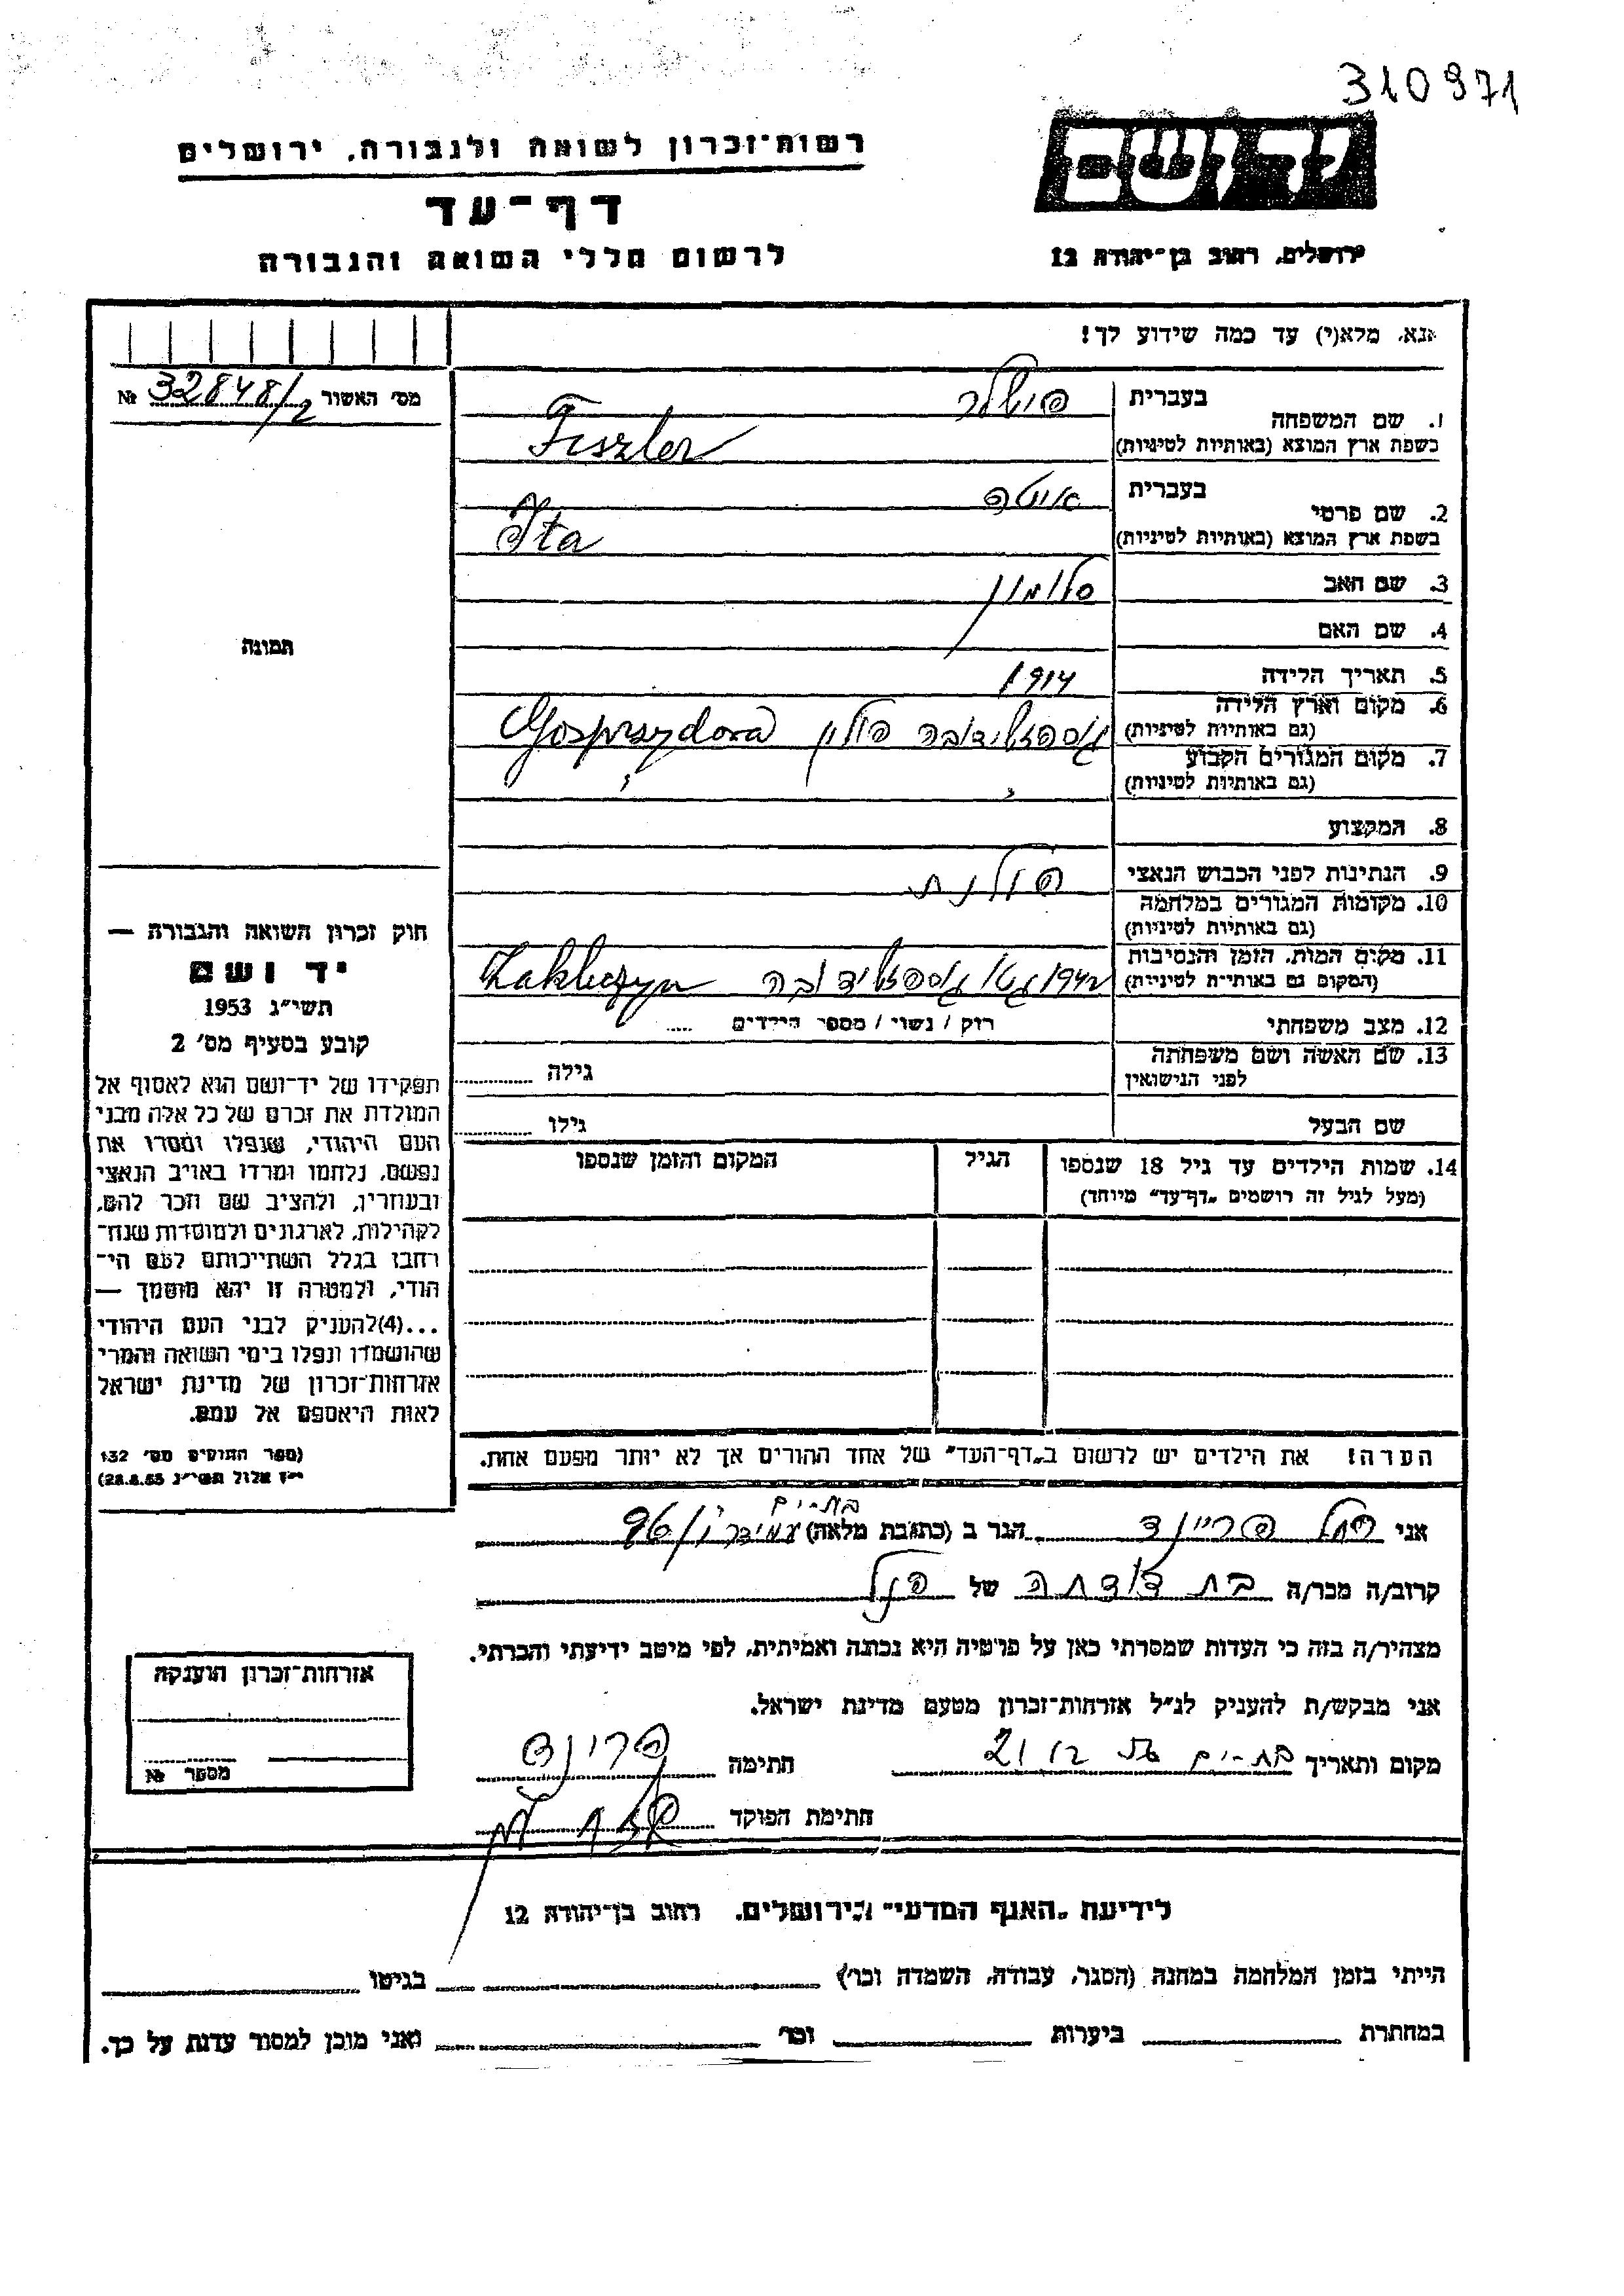 310971
רשות־זכרון לשואה ולגבורה, ירושלים
יד ושם
דף־עד
לרשום חללי השואה והגבורה
ירושלים, רחוב בן־יהודה 12
אנא, מלא(י) עד כמה שידוע לך!
מס׳ האשור 32848/2 №
תמונה
1. שם המשפחה
בעברית פישלר
בשפת ארץ המוצא (באותיות לטיניות) Fiszler
2. שם פרטי
בעברית איטה
בשפת ארץ המוצא (באותיות לטיניות) Ita
3. שם האב סלומון
4. שם האם
5. תאריך הלידה 1914
6. מקום וארץ הלידה
(גם באותיות לטיניות) פולין Gosprzydova
7. מקום המגורים הקבוע
(גם באותיות לטיניות) " "
8. המקצוע
9. הנתינות לפני הכבוש הנאצי פולנית
10. מקומות המגורים במלחמה
(גם באותיות לטיניות)
11. מקום המות, הזמן והנסיבות
(המקום גם באותיות לטיניות) 1942 גטו Zakliczyn
12. מצב משפחתי רוק / נשוי / מספר הילדים
13. שם האשה ושם משפחתה
לפני הנישואין גילה
שם הבעל גילו
14. שמות הילדים עד גיל 18 שנספו הגיל המקום והזמן שנספו
(מעל לגיל זה רושמים „דף־עד" מיוחד)
הערה! את הילדים יש לרשום ב„דף־העד" של אחד ההורים אך לא יותר מפעם אחת.
חוק זכרון השואה והגבורה —
יד ושם
תשי״ג 1953
קובע בסעיף מס׳ 2
תפקידו של יד־ושם הוא לאסוף אל
המולדת את זכרם של כל אלה מבני
העם היהודי, שנפלו ומסרו את
נפשם, נלחמו ומרדו באויב הנאצי
ובעוזריו, ולהציב שם וזכר להם,
לקהילות, לארגונים ולמוסדות שנח־
רחבו בגלל השתייכותם לעם הי־
הודי, ולמטרה זו יהא מוסמך —
...(4)להעניק לבני העם היהודי
שהושמדו ונפלו בימי השואה והמרי
אזרחות־זכרון של מדינת ישראל
לאות היאספם אל עמם.
(ספר החוקים מס׳ 132
י״ז אלול תשי״ג 28.8.53)
בת־ים
אני רחל פריינד הגר ב (כתובת מלאה) עמידר
קרוב/ה מכר/ה בת דודתה של הנ״ל
מצהיר/ה בזה כי העדות שמסרתי כאן על פרטיה היא נכונה ואמיתית, לפי מיטב ידיעתי והכרתי.
אני מבקש/ת להעניק לנ״ל אזרחות־זכרון מטעם מדינת ישראל.
מקום ותאריך בת־ים חתימה פריינד
חתימת הפוקד
אזרחות־זכרון הוענקה
מספר №
לידיעת „האגף המדעי" בירושלים, רחוב בן־יהודה 12
הייתי בזמן המלחמה במחנה (הסגר, עבודה, השמדה וכו׳) בגיטו
במחתרת ביערות וכו׳ ואני מוכן למסור עדות על כך.